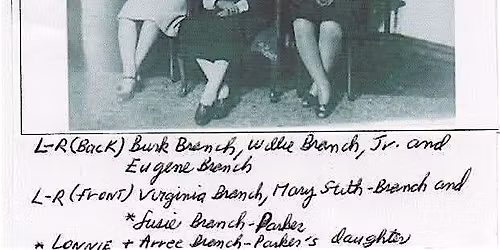 L-R (Back) Burk Branch, Willie Branch, Jr. and
Eugene Branch
L-R (Front) Virginia Branch, Mary Stith-Branch and
*Susie Branch-Parker
* LONNIE + Arree Branch-Parker's daughter